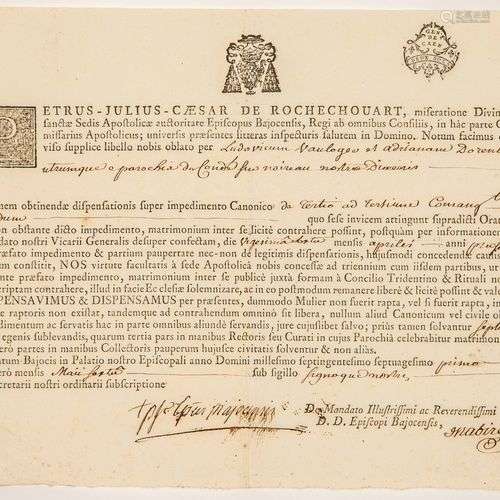 GEN
DE
CAEN
ETRUS-JULIUS-CÆSAR DE ROCHECHOUART, miseratione Divin
sanctæ Sedis Apostolicæ auctoritate Episcopus Bajocensis, Regi ab omnibus Consiliis, in hâc parte C
missarius Apostolicus; universis præsentes litteras inspecturis salutem in Domino. Notum facimus
viso supplice libello nobis oblato per Ludovicum Vaulogeo et adrianam
utrumque e parochia de Condé nostræ Diœcesis
nem obtinendæ dispensationis super impedimento Canonico de tertio ad tertium Consang
quo sese invicem attingunt supradicti Orat
on obstante dicto impedimento, matrimonium inter se licitè contrahere possint, postquàm per information
dato nostri Vicarii Generalis desuper confectam, die septima mensis aprilis anni
ræfato impedimento & partium paupertate nec-non de legitimis dispensationis, hujusmodi concedendæ cau
um constitit, NOS virtute facultatis à sede Apostolicâ nobis concessæ ad triennium cum iisdem partibus, ut
tante præfato impedimento, matrimonium inter se publicè juxtà formam à Concilio Tridentino & Rituali n
criptam contrahere, illud in facie Ecclesiæ solemnizare, ac in eo postmodum remanere liberè & licitè possint &
PENSAVIMUS & DISPENSAMUS per præsentes, dummodo Mulier non fuerit rapta, vel si fuerit rapta, in
te raptoris non existat, tandemque ad contrahendum omninò sit libera, nullum aliud Canonicum vel civile
dimentum ac servatis hac in parte omnibus aliundè servandis, jure cujuslibet salvo; priùs tamen solvantur septe
egenis sublevandis, quarum tertia pars in manibus Rectoris seu Curati in cujus Parochiâ celebrabitur matrimon
verò partes in manibus Collectoris pauperum hujusce civitatis solventur & non aliàs.
tum Bajocis in Palatio nostro Episcopali anno Domini millesimo septingentesimo septuagesimo primo
erò mensis Maii sub sigillo signoque nostris,
ecretarii nostri ordinarii subscriptione
De Mandato Illustrissimi ac Reverendissimi
D. D. Episcopi Bajocensis,